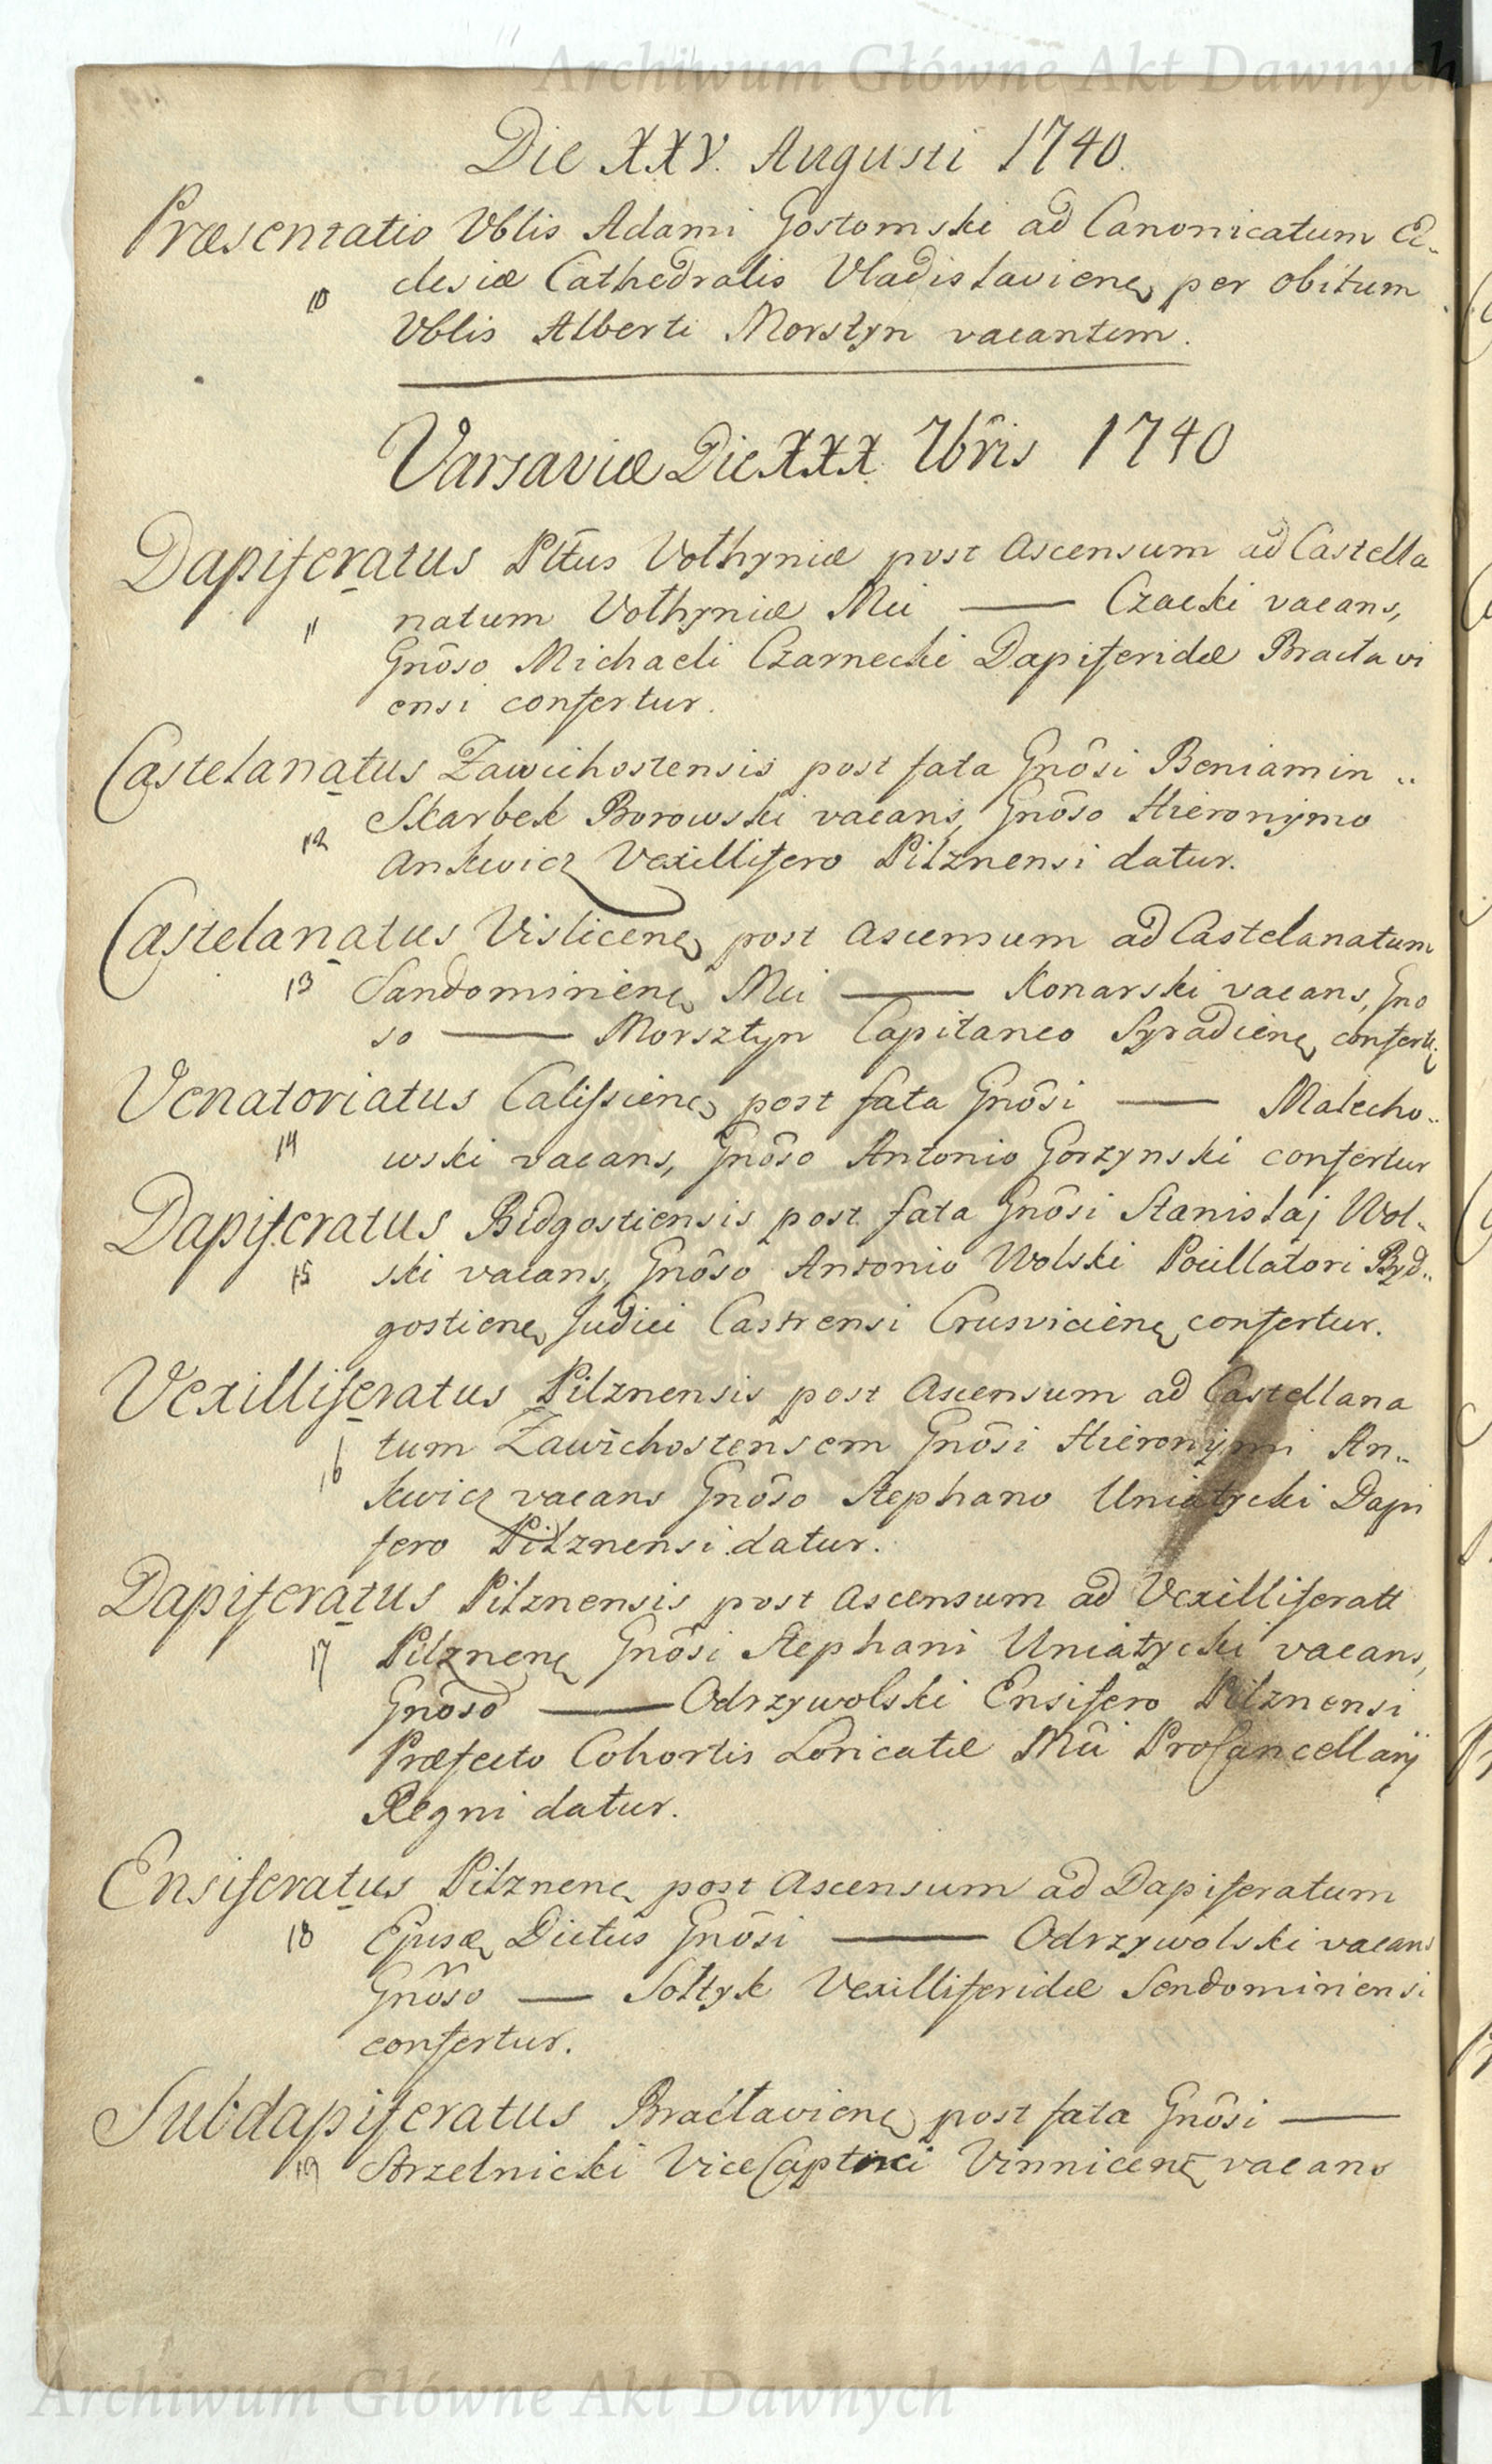 Archiwum Główne Akt Dawnych
Die XXV. Augusti 1740.
Præsentatio Vblis Adami Gostomski ad Canonicatum Ec-
10 clesiæ Cathedralis Vladislavienę per obitum
Vblis Alberti Morstyn vacantem.
Varsaviæ Die XXX. 7bris 1740
Dapiferatus Pltus Volhyniæ post Ascensum ad Castella
11 natum Volhyniæ Mci —— Czacki vacans,
Gnôso Michaeli Czarnecki Dapiferidæ Braclavi
ensi confertur.
Castelanatus Zawichostensis post fata Gnôsi Beniamin ..
12 Skarbek Borowski vacans, Gnôso Hieronymo
Ankwicz Vexillifero Pilznensi datur.
Castelanatus Vislicenę post ascensum ad Castelanatum
13 Sandomirienę Mci —— Konarski vacans, Gno
so —— Morsztyn Capitaneo Syradienę confertr
Venatoriatus Calissienę post fata Gnôsi —— Malecho..
14 wski vacans, Gnôso Antonio Gorzynski confertur
Dapiferatus Bidgostiensis post fata Gnôsi Stanislaj Wol-
15 ski vacans, Gnôso Antonio Wolski Pocillatori Byd..
gostienę Judici Castrensi Crusvicienę confertur.
Vexilliferatus Pilznensis post Ascensum ad Castellana
16 tum Zawichostensem Gnôsi Hieronymi An..
kwicz vacans Gnôso Stephano Uniatycki Dapi
fero Pilznensi datur.
Dapiferatus Pilznensis post Ascensum ad Vexilliferatt
17 Pilznenę Gnôsi Stephani Uniatycki vacans,
Gnôso —— Odrzywolski Ensifero Pilznensi
Præfecto Cohortis Loricatæ Mci ProCancellarij
Regni datur.
Ensiferatus Pilznenę post Ascensum ad Dapiferatum
18 Ejusdę Dictus Gnôsi —— Odrzywolski vacans
Gnôso — Sołtyk Vexilliferidæ Sendomiriensi
confertur.
Subdapiferatus Braclavienę post fata Gnôsi ——
19 Strzelnicki ViceCaptnci Vinnicenę vacans
Archiwum Główne Akt Dawnych